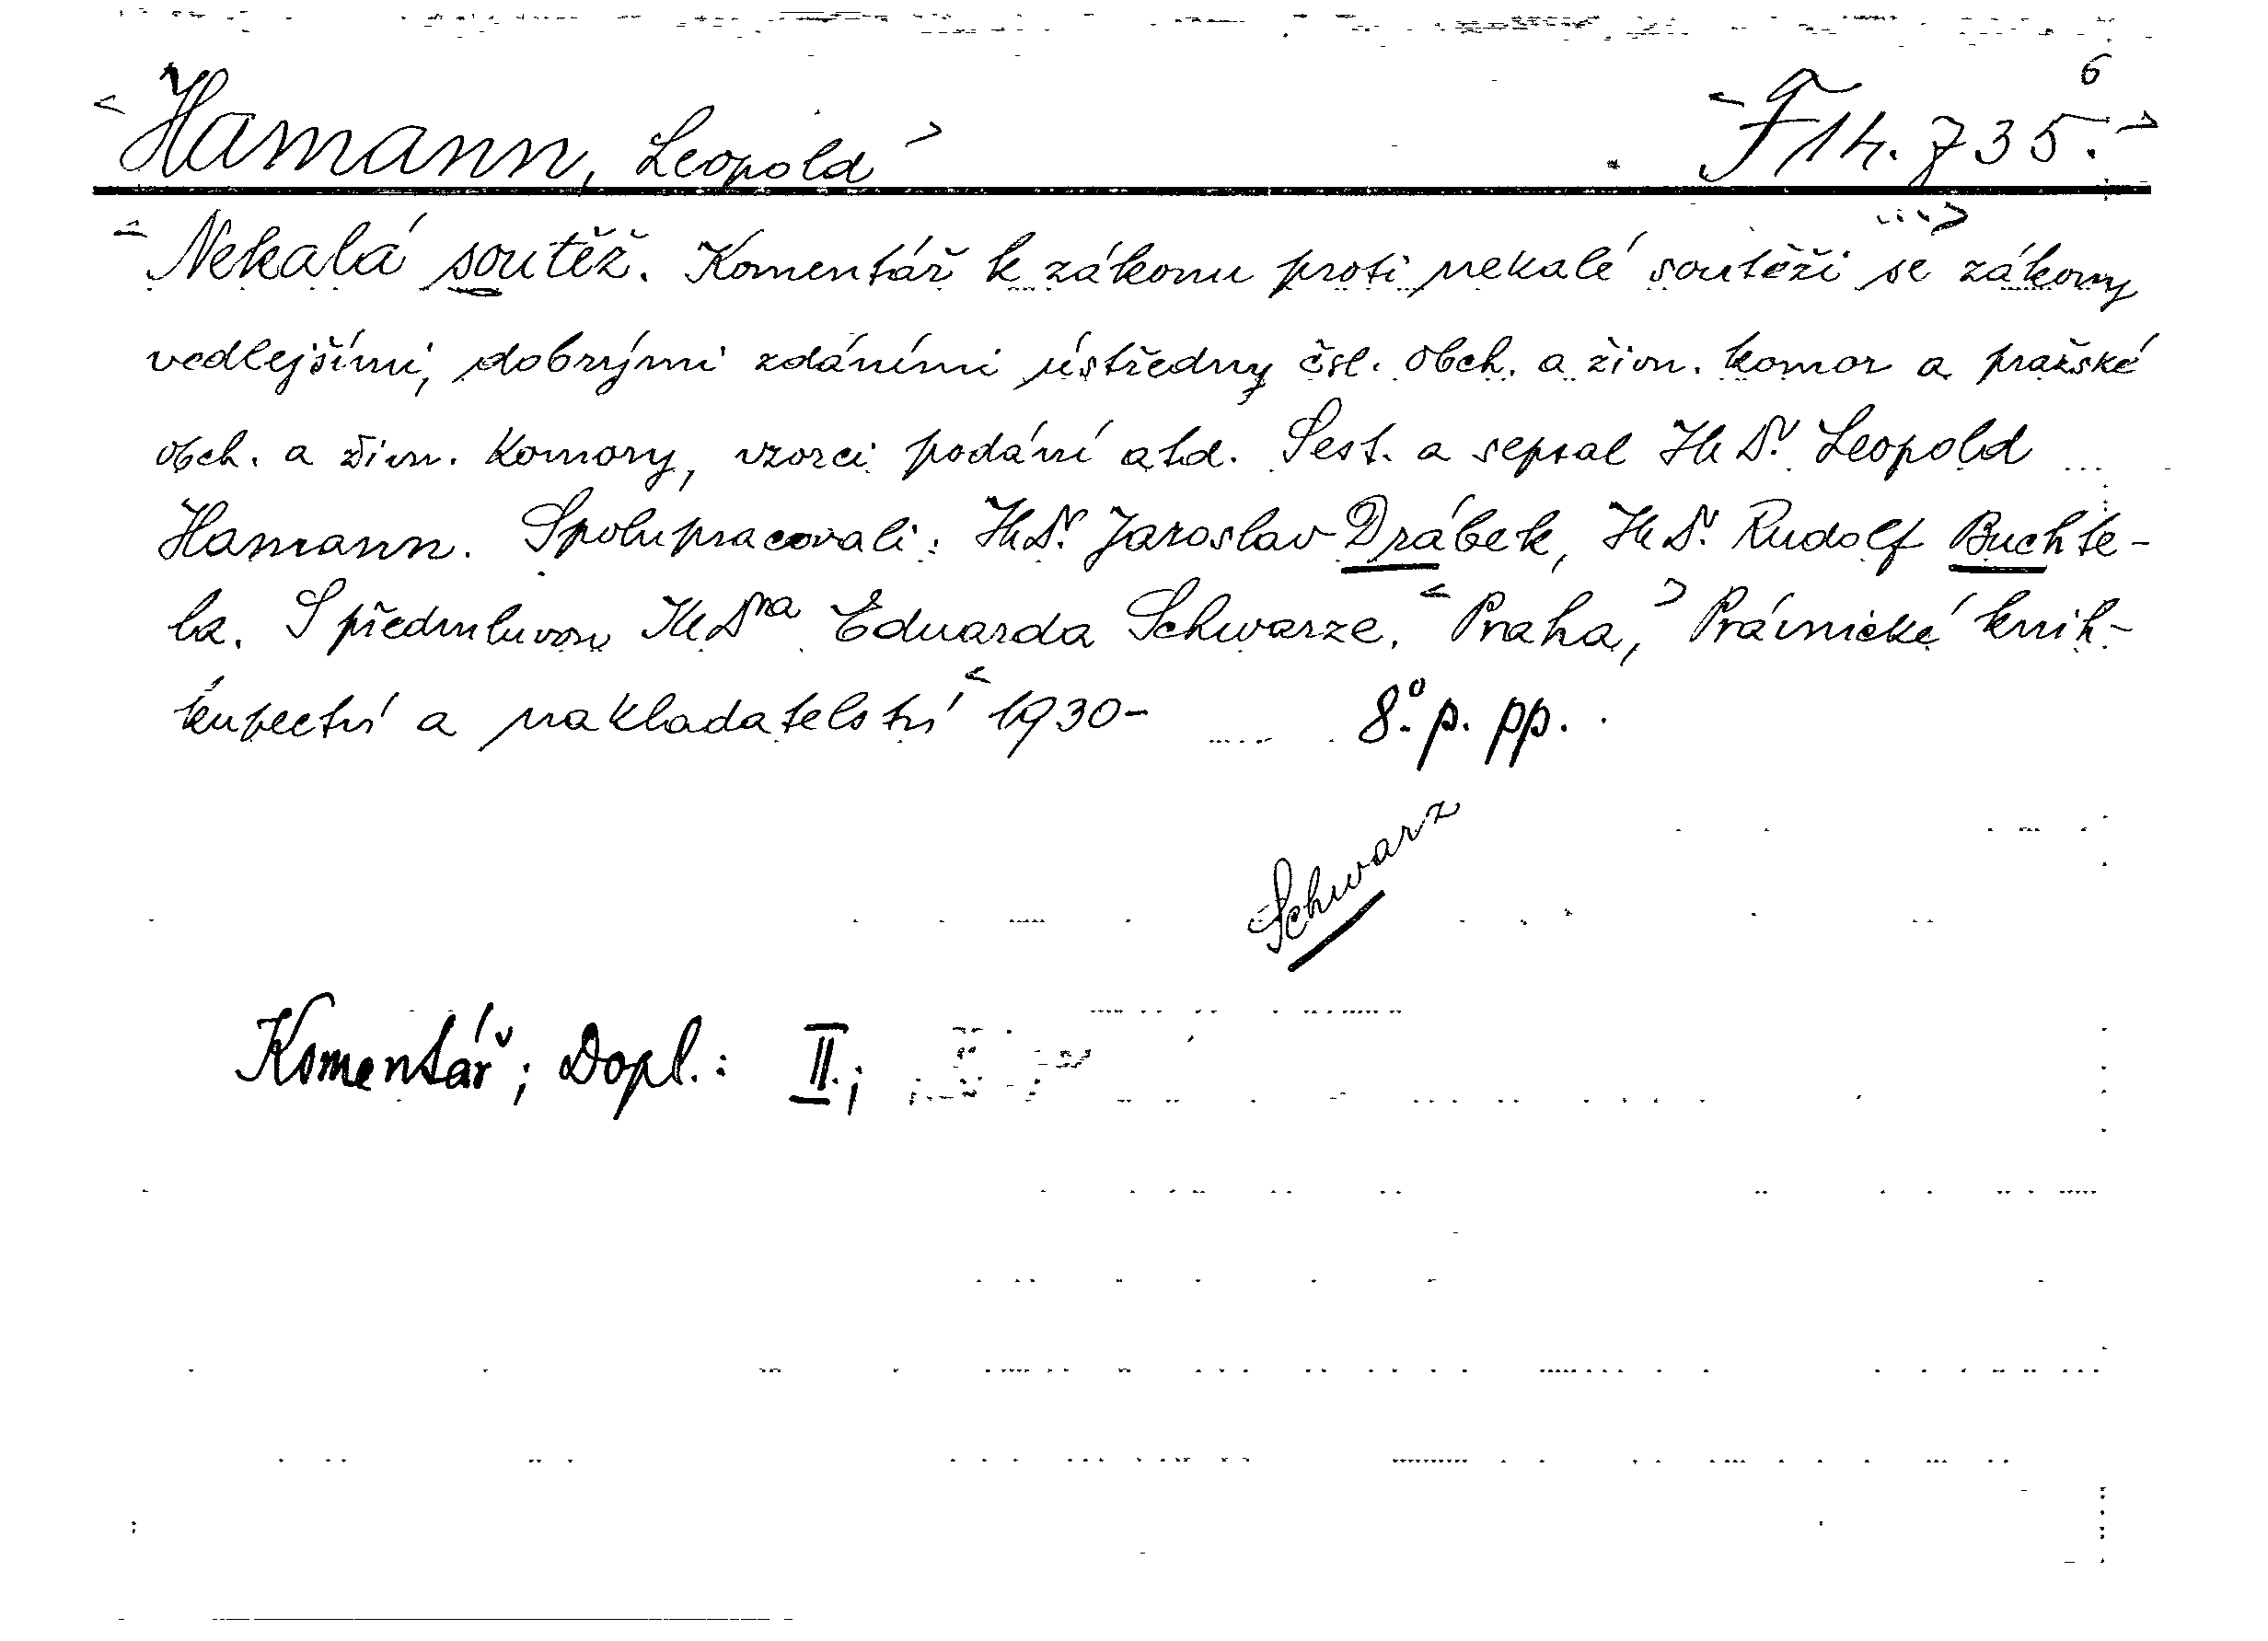 6
< Hamann, Leopold > < F 14.735. >
< Nekalá soutěž. Komentář k zákonu proti nekalé soutěži ...> se zákony
vedlejšími, dobrými zdáními ústředny čsl. obch. a živn. komor a pražské
obch. a živn. komory, vzorci podání atd. Sest. a sepsal JUDr. Leopold
Hamann. Spolupracovali: JUDr. Jaroslav Drábek, JUDr. Rudolf Buchte-
la. S předmluvou JUDra Eduarda Schwarze. < Praha, > Právnické knih-
kupectví a nakladatelství < 1930- 8°. p. pp.
Schwarz
Komentář; Dopl.: II.;